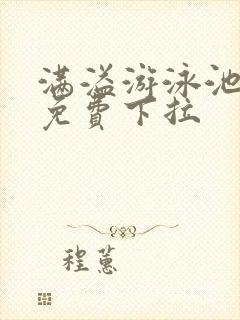 满溢游泳池
免費下拉
程蕙